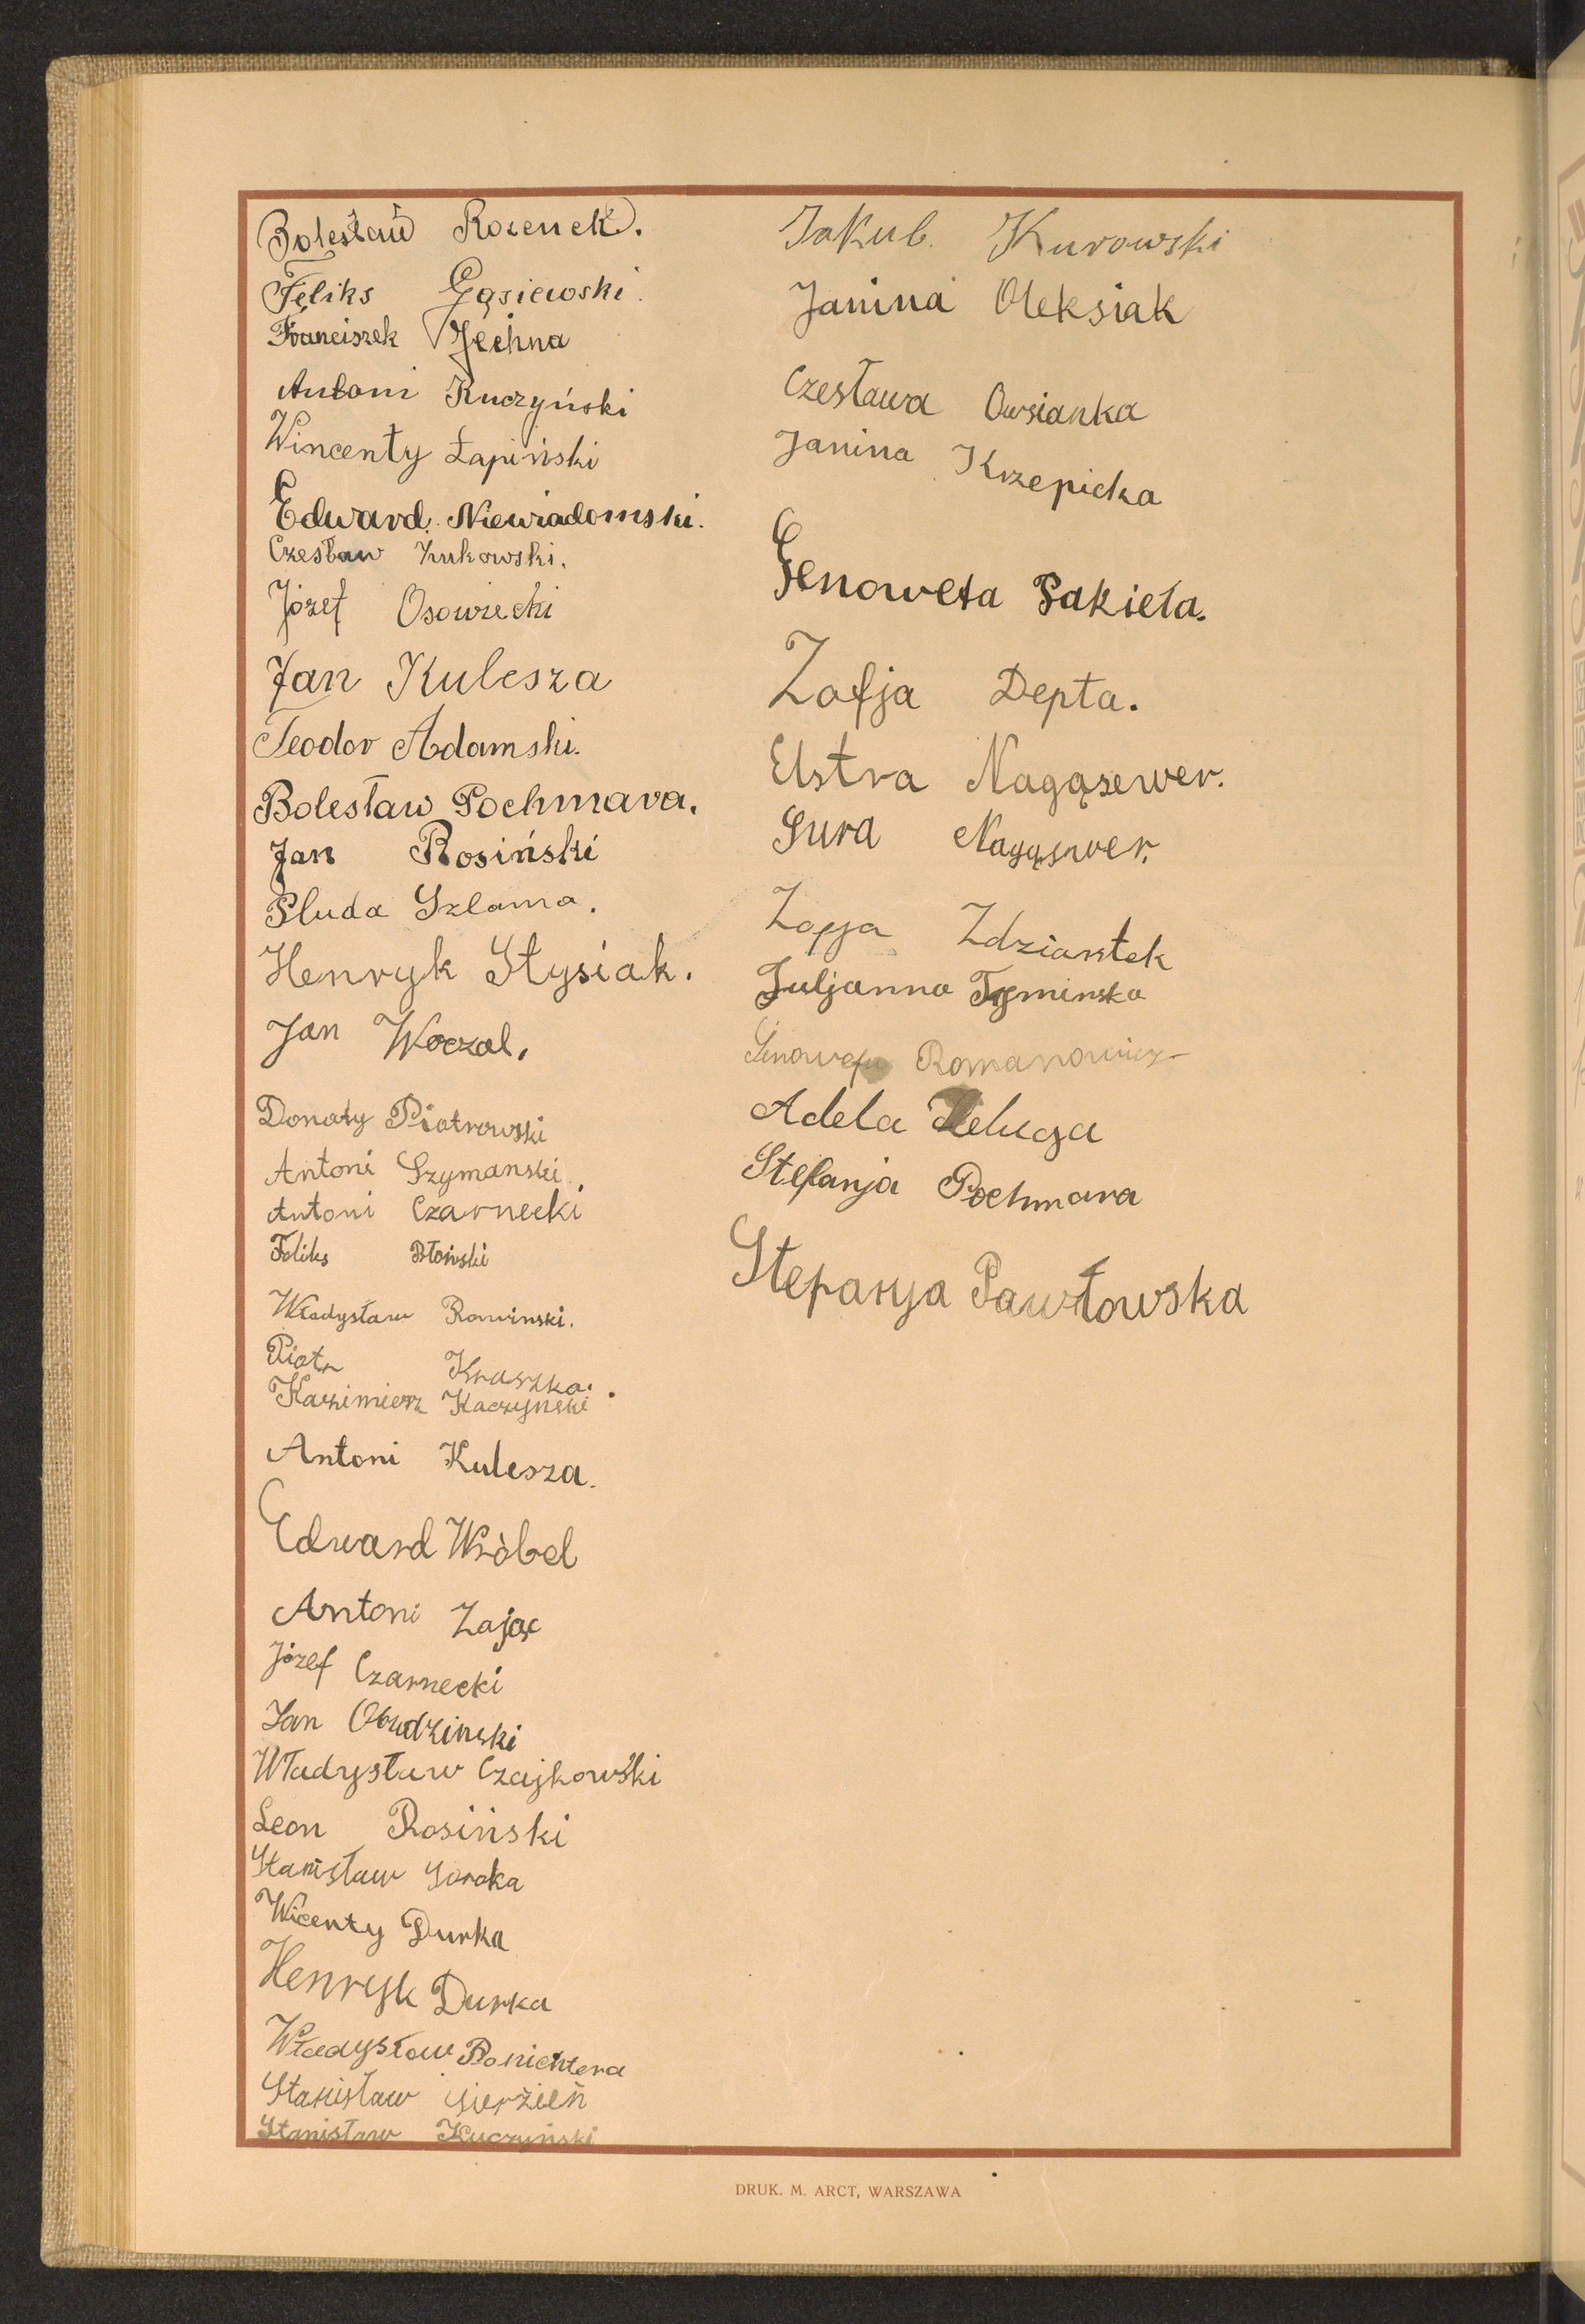 Bolesław Rozenek.
Feliks Gąsiewski.
Franciszek Jechna
Antoni Kuczyński
Wincenty Łapiński
Edward. Niewiadomski.
Czesław Żukowski.
Józef Osowiecki
Jan Kulesza
Teodor Adamski.
Bolesław Pochmara.
Jan Rosiński
Pluda Szlama.
Henryk Stysiak.
Jan Woczal.
Donaty Piotrowski
Antoni Szymanski.
Antoni Czarnecki
Feliks Błoński
Władysław Rowinski.
Piotr Kraszka.
Kazimierz Kaczynski.
Antoni Kulesza.
Edward Wròbel
Antoni Zając
Józef Czarnecki
Jan Obudzinski
Władysław Czajkowski
Leon Rosiński
Stanisław Soroka
Wicenty Durka
Henryk Durka
Władysław Ponichtera
Stanisław
Stanisław Kuczyński
Jakub. Kurowski
Janina Oleksiak
Czesława Owsianka
Janina Krzepicka
Genowefa Pakieła.
Zofja Depta.
Estra Nagąsewer.
Sura Nagąsewer.
Zofja Zdziartek
Juljanna Tyminska
Genowefa Romanowicz
Adela
Stefanja Pochmara
Stefanja Pawłowska
DRUK. M. ARCT, WARSZAWA